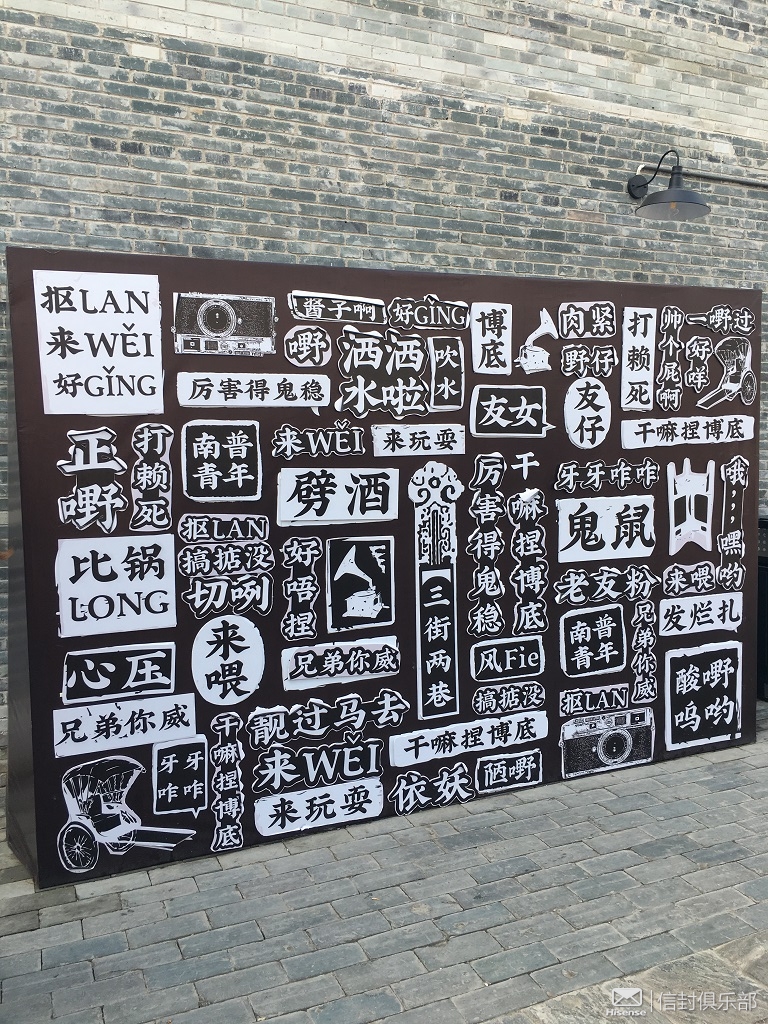 抠LAN
来WĚI
好GǏNG
酱子啊
好GǏNG
嘢
洒洒
水啦
吹水
厉害得鬼稳
博底
肉紧
野仔
打赖死
帅个屁啊
一嘢过
好咩
友女
友仔
干嘛捏博底
正嘢
打赖死
南普
青年
来WĚI
来玩耍
劈酒
厉害得鬼稳
干嘛捏博底
牙牙咋咋
鬼鼠
哦,,,嘿哟
比锅
LONG
抠LAN
搞掂没
切咧
好唔捏
三街两巷
老友粉
来喂
发烂扎
来喂
心压
兄弟你威
风Fie
南普
青年
兄弟你威
酸嘢
呜哟
兄弟你威
牙牙
咋咋
干嘛捏博底
靓过马去
来WĚI
来玩耍
搞掂没
抠LAN
干嘛捏博底
依妖
陋嘢
Hisense
信封俱乐部